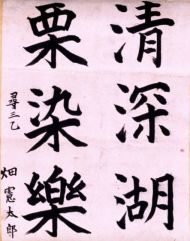 清深湖
栗染樂
尋三乙
畑憲太郎